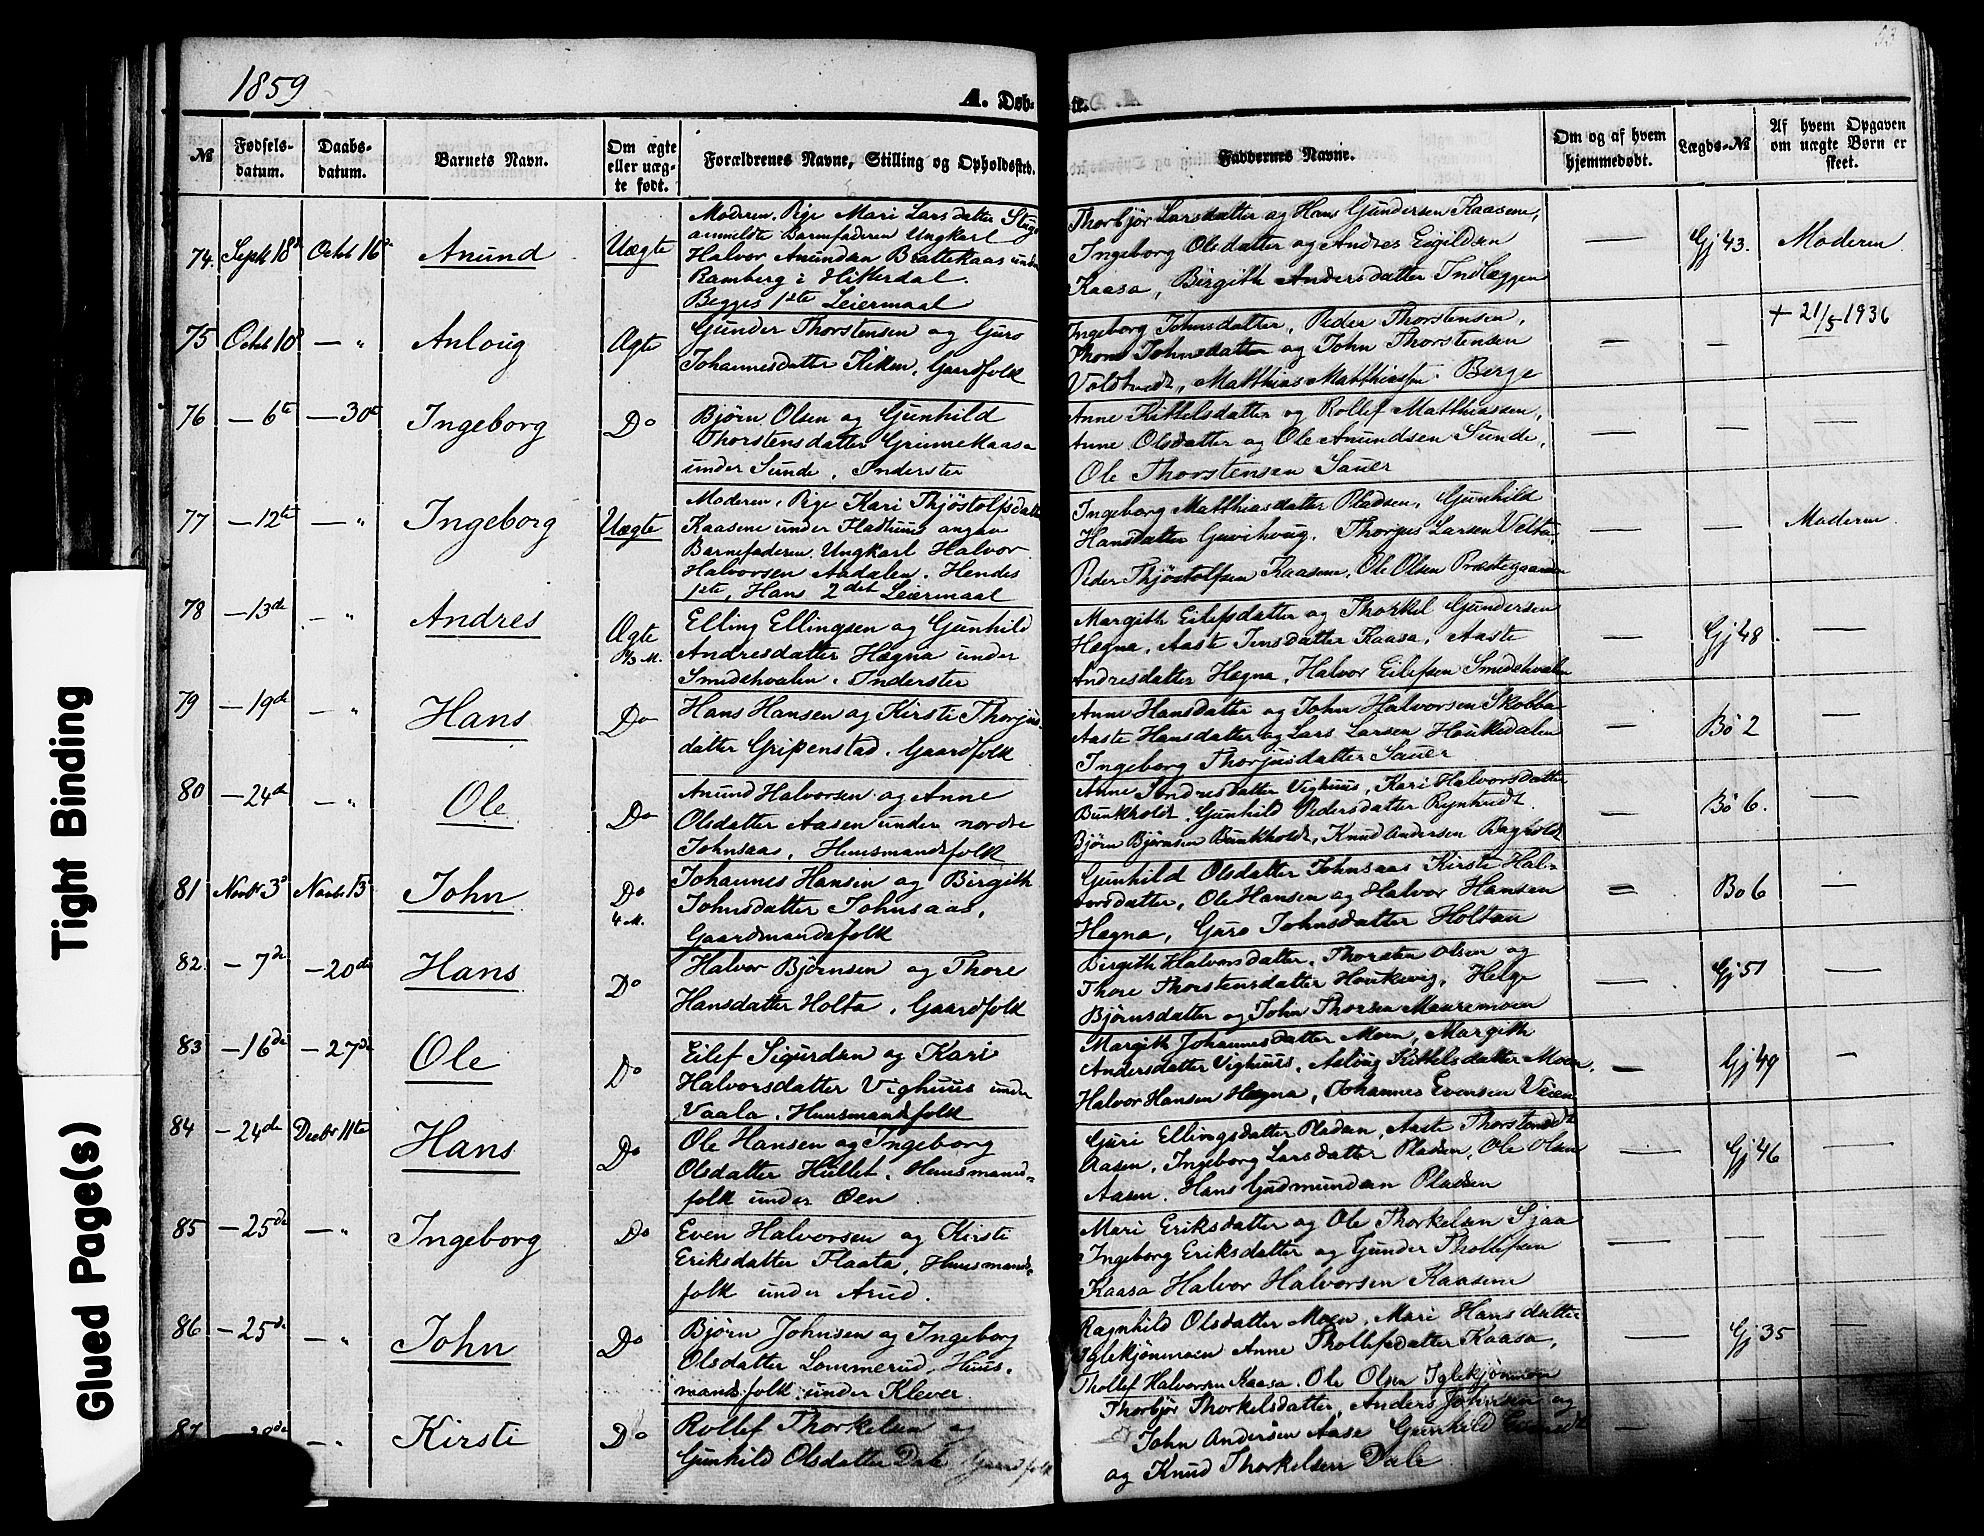 53
1859
A. Døb-
te.
№
Fødsels-
datum.
Daabs-
datum.
Barnets Navn.
Om ægte
eller uæg-
te født.
Forældrenes Navne, Stilling og Opholdssted.
Faddernes Navne.
Om og af hvem
hjemmedøbt.
Lægds-№
Af hvem Opgaven
om uægte Børn er
skeet.
74. Septr 18de Octbr 16de Anund Uægte
Moderen, Pige Mari Larsdatter
anmeldte Barnefaderen Ungkarl
Halvor Anundsen Brattekaas under
Ramberg i Hitterdal.
Begges 1ste Leiermaal
Thorbjør Larsdatter og Hans Gundersen Kaasene,
Ingeborg Olsdatter og Andres Eigildsen
Kaasa, Birgith Andersdatter Indlæggen
— Gj 43. Moderen
75 Octbr 10de — " Anloug Ægte
Gunder Thorstensen og Guro
Johannesdatter Kiken, Gaardfolk
Ingeborg Johnsdatter, Peder Thorstensen,
Thone Johnsdatter og John Thorstensen
Voldtvedt, Matthias Matthiassen Berge
— — + 21/5 1936
76 — 6te — 30te Ingeborg Do
Bjørn Olsen og Gunhild
Thorstensdatter Grinnekaasa
under Sunde, Inderster
Anne Kittelsdatter og Rollef Matthiassen,
Anne Olsdatter og Ole Anundsen Sunde,
Ole Thorstensen Sauer
— — —
77 — 12te — " Ingeborg Uægte
Moderen, Pige Kari Thjøstolfsdatter
Kaasene under Hadhuus angav
Barnefaderen Ungkarl Halvor
Halvorsen Aadalen. Hendes
1ste, Hans 2det Leiermaal
Ingeborg Matthiasdatter Pladsen, Gunhild
Hansdatter Thorgus Larsen
Peder Thjøstolfsen Kaasene, Ole Olsen Præstegaarden
— — Moderen
78 — 13de — " Andres Ægte
Elling Ellingsen og Gunhild
Andresdatter Hægna under
Smedehvalen, Inderster
Margith Eilefsdatter og Thorkel Gundersen
Hægna, Aaste Jensdatter Kaasa, Aaste
Andresdatter Hægna, Halvor Eilefsen Smedehvalen
— Gj 48. —
79 — 19de — " Hans Do
Hans Hansen og Kirsti Thorjus
datter Gripenstad. Gaardfolk
Anne Hansdatter og John Halvorsen Skobba
Aaste Hansdatter og Lars Larsen Haukedalen
Ingeborg Thorjusdatter Sauer
— Bö 2 —
80 — 24de — " Ole Do
Anund Halvorsen og Anne
Olsdatter Aasen under nordre
Johnsaas, Huusmandsfolk
Anne Sondresdatter Vighuus, Kari Halvorsdatter
Bunkholdt, Gunhild Pedersdatter
Bjørn Bjørnsen Bunkholdt, Knud Andersen
— Bö 6. —
81 Novbr 3de Novbr 13 John Do
4 M.
Johannes Hansen og Birgith
Johnsdatter Johnsaas,
Gaardmandsfolk
Gunhild Olsdatter Johnsaas Kirsti Hal-
vorsdatter, Ole Hansen og Halvor Hansen
Hægna, Guro Johnsdatter Holtan
— Bo 6 —
82. — 7de — 20de Hans Do
Halvor Bjørnsen og Thore
Hansdatter Holta, Gaardfolk
Birgith Halvorsdatter, Thorsten Olsen og
Thore Thorstensdatter Haukevig, Helge
Bjørnsdatter og John Thorsen Mauremoen
— Gj 51 —
83 — 16de — 27de Ole Do
Eilef Sigurdsen og Kari
Halvorsdatter Vighuus under
Vaala, Huusmandsfolk
Margith Johannesdatter Moen, Margith
Andersdatter Vighuus, Aslaug Kittelsdatter Moen,
Halvor Hansen Hægna, Johannes Evensen Veien
— Gj 49 —
84 — 24de Decbr 11te Hans Do
Ole Hansen og Ingeborg
Olsdatter Hullet, Huusmands-
folk under Øen
Guri Ellingsdatter Pladsen, Aaste Thorstensdt
Aasen, Ingeborg Larsdatter Pladsen, Ole Olsen
Aasen, Hans Gudmundsen Pladsen
— Gj 46 —
85 — 25de — " Ingeborg Do
Even Halvorsen og Kirsti
Eriksdatter Flaata, Huusmands-
folk under Arud.
Mari Eriksdatter og Ole Thorkelsen Sjaa
Ingeborg Eriksdatter og Gunder Thollefsen
Kaasa Halvor Halvorsen Kaasene
— — —
86 — 25de — " John Do
Bjørn Johnsen og Ingeborg
Olsdatter Lommerud, Huus-
mandsfolk under Klever
Ragnhild Olsdatter Moen, Mari Hansdatter
Iglekjønmoen Anne Thollefsdatter Kaasa,
Thollef Halvorsen Kaasa. Ole Olsen Iglekjønmoen
— Gj 35 —
87 — 28de — " Kirsti Do
Rollef Thorkelsen og
Gunhild Olsdatter Dale Gaardfolk
Thorbjør Thorkelsdatter, Anders Johnsen og
John Andersen Aase Gunhild
og Knud Thorkelsen Dale
—
Tight Binding
Glued Page(s)